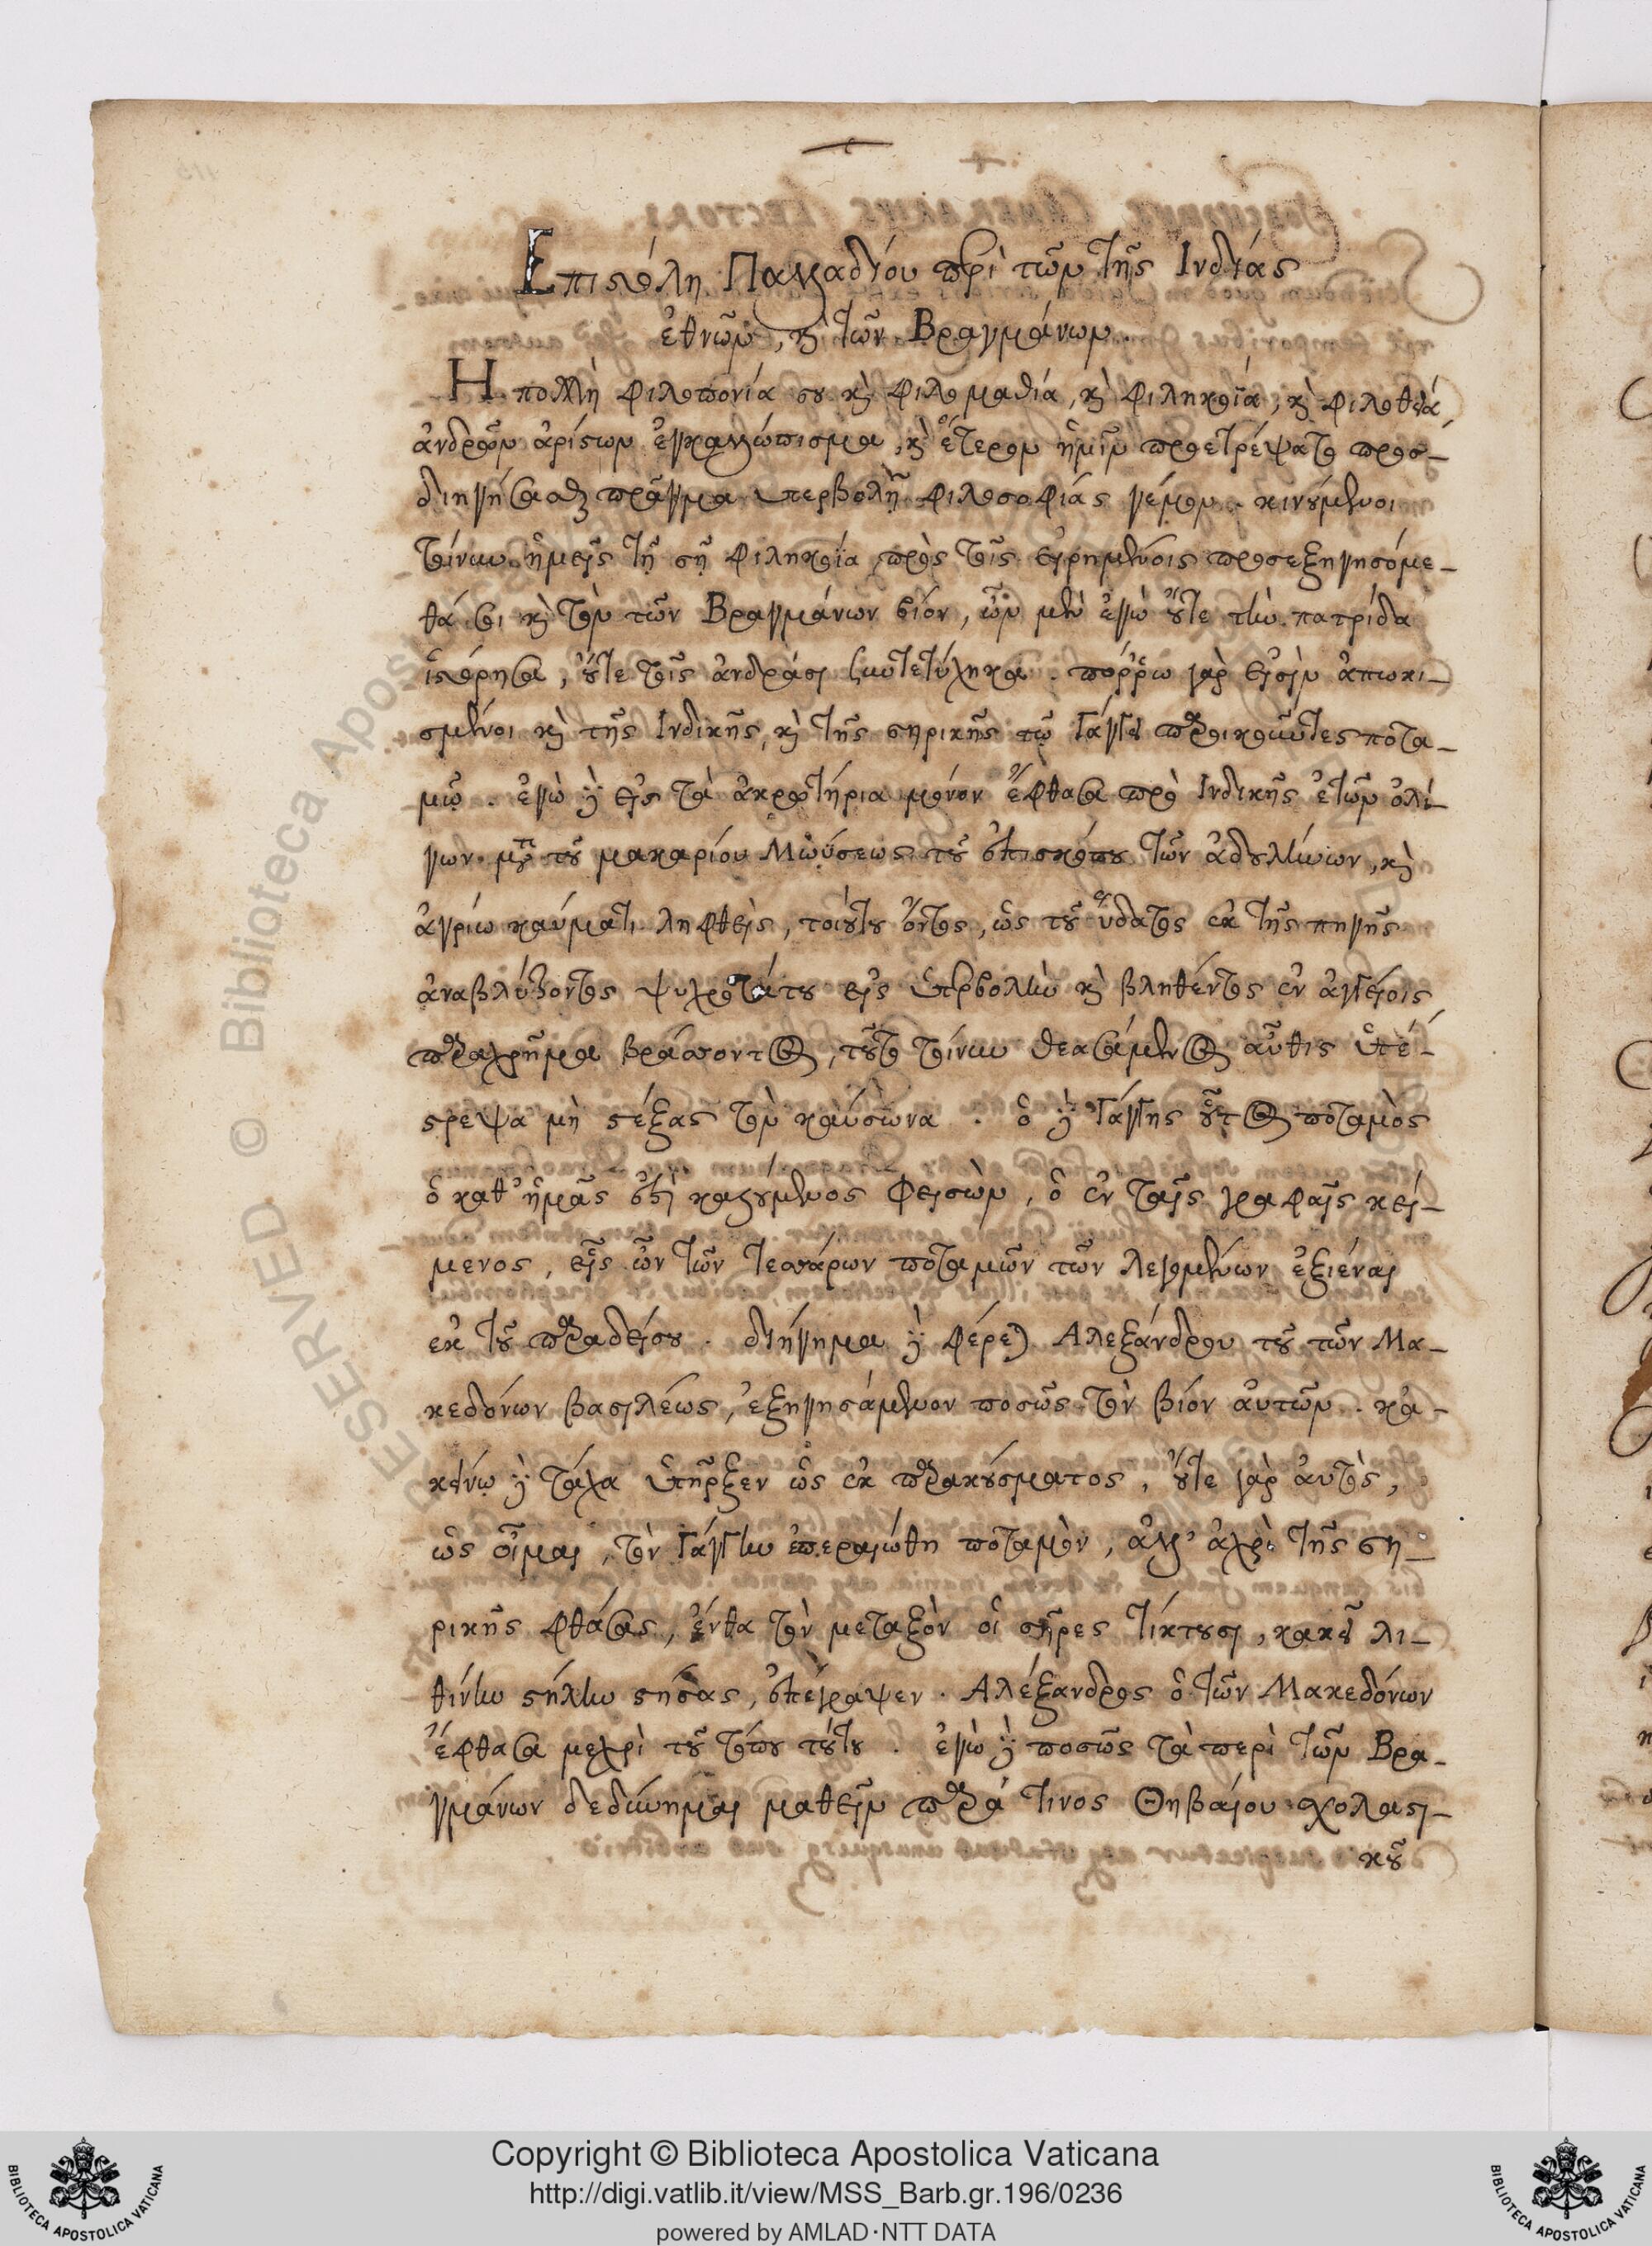 Ἐπιστόλη Παλλαδίου περὶ τῶν τῆς Ἰνδίας
ἐθνῶν, καὶ τῶν Βραγμάνων.
Η πολλὴ φιλοπονία σου καὶ φιλομαθία, καὶ φιληκοΐα, καὶ φιλοθεΐα,
ἀνδρῶν ἀρίστων ἐγκαλλώπισμα, καὶ ἕτερον ἡμῖν προετρέψατο προσ-
διηγήσασθαι πρᾶγμα ὑπερβολῇ φιλοσοφίας γέμον. κινούμενοι
τοίνυν ἡμεῖς τῇ σῇ φιληκοΐα πρὸς τοῖς εἰρημένοις προσεξηγησόμε-
θά σοι καὶ τὸν τῶν Βραγμάνων βίον, ὧν μὲν ἐγὼ οὔτε τὴν πατρίδα
ἱστόρησα, οὔτε τοῖς ἀνδράσι συντετύχηκα. πόῤῥω γὰρ εἰσὶν ἀπωκι-
σμένοι καὶ τῆς Ἰνδικῆς, καὶ τῆς σηρικῆς τῷ Γάγγῃ παροικοῦντες ποτα-
μῷ. ἐγὼ δὲ εἰς τὰ ἀκρωτήρια μόνον ἔφθασα πρὸ Ἰνδικῆς ἐτῶν ὀλί-
γων μετὰ τοῦ μακαρίου Μωϋσέως τοῦ ἐπισκόπου τῶν ἀδουλίνων, καὶ
ἀγρίῳ καύματι ληφθεὶς, τοιούτου ὄντος, ὡς τοῦ ὕδατος ἐκ τῆς πηγῆς
ἀναβλύζοντος ψυχροτάτου εἰς ὑπερβολὴν καὶ βληθέντος ἐν ἀγγείοις
παραχρῆμα βράσσοντος, τοῦτο τοίνυν θεασάμενος αὖθις ὑπέ-
στρεψα μὴ στέξας τὸν καύσωνα. ὁ δὲ Γάγγης οὗτος ποταμὸς
ὁ καθ' ἡμᾶς ἐστὶ καλούμενος Φεισὼν, ὁ ἐν ταῖς γραφαῖς κεί-
μενος, εἷς ὢν τῶν τεσσάρων ποταμῶν τῶν λεγομένων ἐξιέναι
ἐκ τοῦ παραδείσου. διήγημα δὲ φέρεται Ἀλεξάνδρου τοῦ τῶν Μα-
κεδόνων βασιλέως, ἐξηγησάμενον ποσῶς τὸν βίον αὐτῶν. κἀ-
κείνῳ δὲ τάχα ὑπῆρξεν ὡς ἐκ παρακούσματος, οὔτε γὰρ αὐτὸς,
ὡς οἶμαι, τὸν Γάγγην ἐπεραιώθη ποταμὸν, ἀλλ' ἄχρι τῆς ση-
ρικῆς φθάσας, ἔνθα τὸν μεταξὸν οἱ σῆρες τίκτουσι, κακεῖ λι-
θίνην στήλην στήσας, ἐπέγραψεν. Ἀλέξανδρος ὁ τῶν Μακεδόνων
ἔφθασα μεχρὶ τοῦ τόπου τούτου. ἐγὼ δὲ ποσῶς τὰ περὶ τῶν Βρα-
γμάνων δεδύνημαι μαθεῖν παρά τινος Θηβαίου σχολαστι-
κοῦ
Copyright © Biblioteca Apostolica Vaticana
http://digi.vatlib.it/view/MSS_Barb.gr.196/0236
powered by AMLAD·NTT DATA